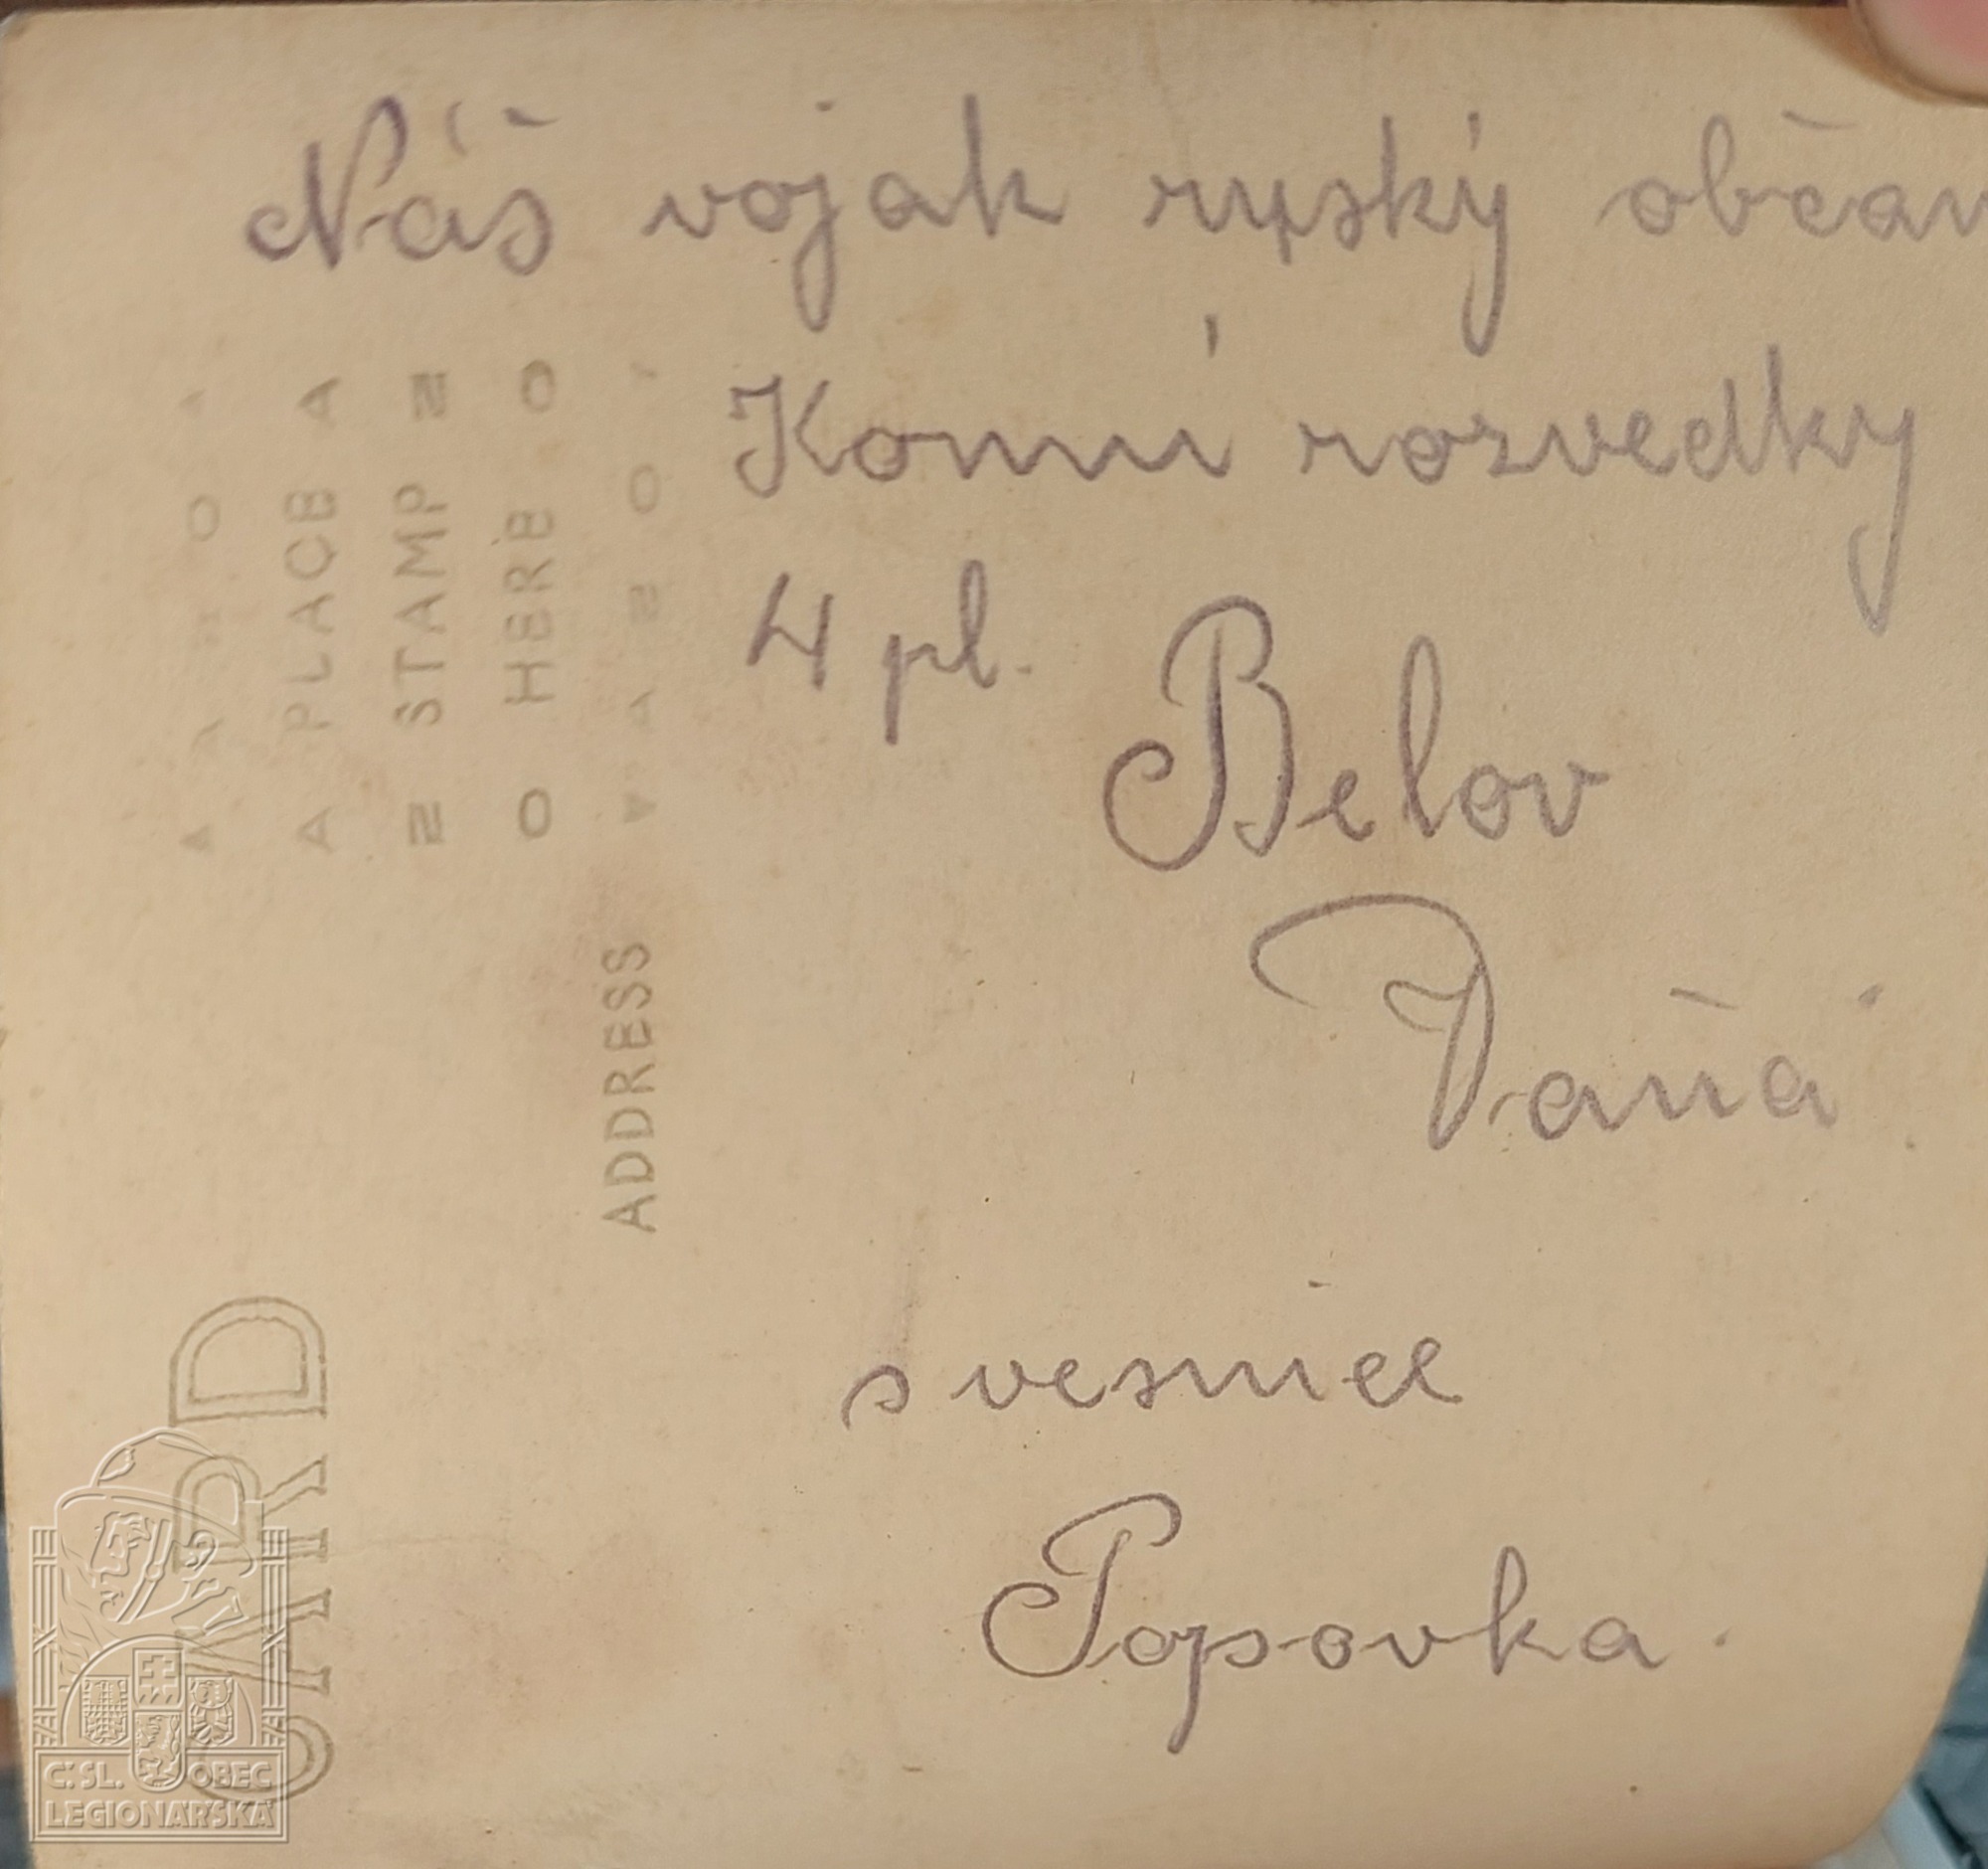 Náš voják ruský občan
Konní rozvedky
4 pl.
Belov
Váňa
s vesnice
Popovka.
PLACE
STAMP
HERE
ADDRESS
CARD
Č. SL. OBEC
LEGIONÁŘSKÁ